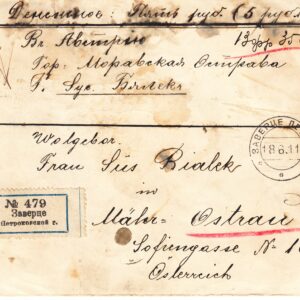 Денежное: Пять руб. (5 руб.
Въ Австрію 13 фр 35
Гор. Моравская Острава
Г. Sys. Бялекъ
ЗАВЕРЦЕ
18.6.11
Wolgebor.
Frau Süs Bialek
in
Mähr-Ostrau
Sofiengasse № 1
Österreich
№ 479
Заверце
Петроковской г.